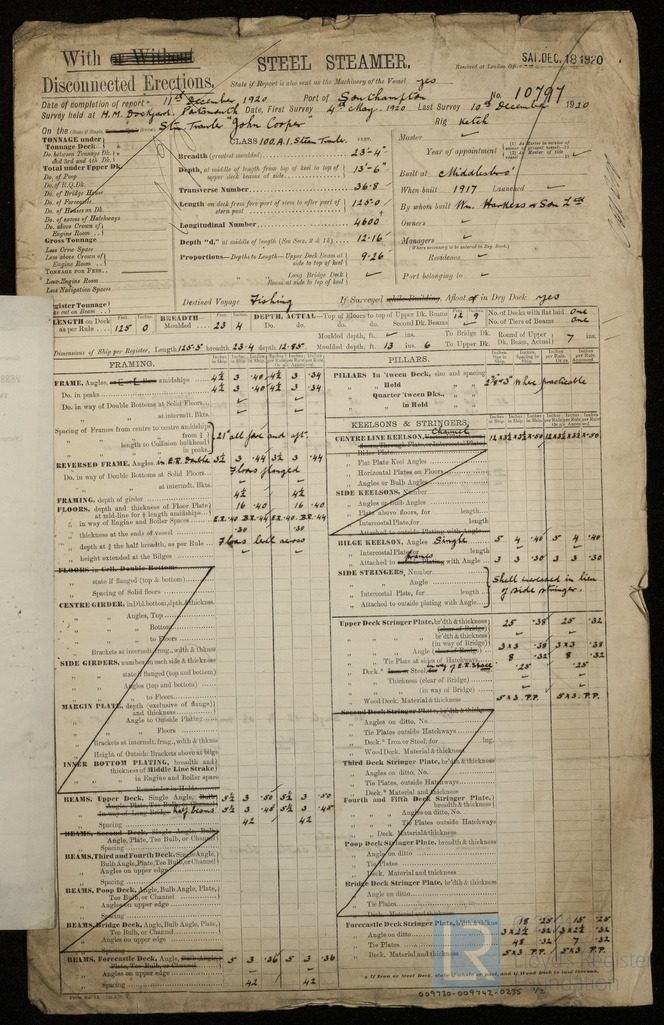 With or Without
Disconnected Erections.
STEEL STEAMER.
Received at London Office
SAT. DEC. 18 1920
State if Report is also sent on the Machinery of the Vessel yes
Date of completion of report 11th December, 1920 Port of Southampton No. 10797
Survey held at H.M. Dockyard, Portsmouth Date, First Survey 4th May, 1920 Last Survey 10th December 1920
On the Stm Trawler "John Cooper" Rig Ketch
TONNAGE under Tonnage Deck
Do. between Tonnage Dk. and 3rd and 4th Dk.
Total under Upper Dk.
Do. of Poop
Do. of R.Q.Dk.
Do. of Bridge House
Do. of Forecastle
Do. of Houses on Dk.
Do. of excess of Hatchways
Do. above Crown of Engine Room
Gross Tonnage
Less Crew Space
Less above Crown of Engine Room
TONNAGE FOR FEES
Less Engine Room
Less Navigation Spaces
Register Tonnage
as cut on Beam
CLASS 100.A.1. Steam Trawler.
Breadth (greatest moulded) 23'-4"
Depth, at middle of length from top of keel to top of upper deck beams at side 13'-6"
Transverse Number 36.8
Length on deck from fore part of stem to after part of stern post 125.0
Longitudinal Number 4600
Depth "d," at middle of length (See Secs. 2 & 13) 12.16
Proportions—Depths to Length—Upper Deck Beam at side to top of keel 9.26
Long Bridge Deck Beam at side to top of keel
Master
Year of appointment
Built at Middlesbro'
When built 1917 Launched
By whom built Wm. Harkess & Son Ltd
Owners
Managers
(Where necessary to be entered in Reg. Book)
Residence
Port belonging to
Destined Voyage Fishing If Surveyed while Building, Afloat or in Dry Dock yes
LENGTH on Deck as per Rule 125 0 BREADTH—Moulded 23 4 DEPTH, ACTUAL—Top of Floors to top of Upper Dk. Beams 12 9 No. of Decks with flat laid One
Second Dk. Beams No. of Tiers of Beams One
Dimensions of Ship per Register, Length 125.5 breadth 23.4 depth 12.85 Moulded depth, ft. 13 ins. 6 To Upper Dk. Round of Upper Dk. Beam, Actual 7 ins.
FRAMING.
FRAME, Angles, amidships 4½ 3 .40 4½ 3 .34
Do. in peaks 4½ 3 .40 4½ 3 .34
Do. in way of Double Bottoms at Solid Floors
at intermdt. Bkts.
Spacing of Frames from centre to centre amidships
length to Collision bulkhead 21" all fore and aft.
in peaks
REVERSED FRAME, Angles in E.R. Double 3½ 3 .44 3½ 3 .44
Do. in way of Double Bottoms at Solid Floors Floors flanged
at intermdt. Bkts.
FRAMING, depth of girder 4½ 4½
FLOORS, depth and thickness of Floor Plate at mid-line for ¾ length amidships 16 .40 16 .40
in way of Engine and Boiler Spaces E.R. .40 B.R .44 E.R. .40 B.R .44
thickness at the ends of vessel .30 .30
depth at ¾ the half breadth, as per Rule Floors level across
height extended at the Bilges
FLOORS in Cell. Double Bottom
state if flanged (top & bottom)
Spacing of Solid floors
CENTRE GIRDER, in Dbl. bottom, dpth. & thickness.
Angles, Top
Bottom
to Floors
Brackets at intermdt. frmg., width & thkns
SIDE GIRDERS, number on each side & thickness
state if flanged (top and bottom)
Angles (top and bottom)
to Floors
MARGIN PLATE, depth (exclusive of flange) and thickness
Angle to Outside Plating
Floors
Brackets at intermdt. frmg., width & thkns
Height of Outside Brackets above at bilge
INNER BOTTOM PLATING, breadth and thickness of Middle Line Strake
in Engine and Boiler space
Remainder in Holds
BEAMS, Upper Deck, Single Angle, Bulb Angle, Plate, Tee Bulb, or Channel 5½ 3 .50 5½ 3 .50
In way of Long Bridge half beams 5½ 3 .45 5½ 3 .45
Spacing 42 42
BEAMS, Second Deck, Single Angle, Bulb Angle, Plate, Tee Bulb, or Channel
Spacing
BEAMS, Third and Fourth Deck, Single Angle, Bulb Angle, Plate, Tee Bulb, or Channel
Angles on upper edge
Spacing
BEAMS, Poop Deck, Angle, Bulb Angle, Plate, Tee Bulb, or Channel
Angles on upper edge
Spacing
BEAMS, Bridge Deck, Angle, Bulb Angle, Plate, Tee Bulb, or Channel
Angles on upper edge
Spacing
BEAMS, Forecastle Deck, Angle, Bulb Angle, Plate, Tee Bulb, or Channel 5 3 .36 5 3 .36
Angles on upper edge
Spacing 42 42
PILLARS.
PILLARS In 'tween Deck, size and spacing
Hold 2⅞ & 3" Where practicable
Quarter 'tween Dks.,
in Hold
KEELSONS & STRINGERS.
CENTRE LINE KEELSON, Channel 12 x 3½ x 3½ x .50 12 x 3½ x 3½ x .50
Rider Plate
Flat Plate Keel Angles
Horizontal Plates on Floors
Angles or Bulb Angles
SIDE KEELSONS, Number
Angles or Bulb Angles
Plate above floors, for length
Intercostal Plate, for length
Attached to outside Plating with Angle
BILGE KEELSON, Angles Single 5 4 .40 5 4 .40
Intercostal Plate for length
Attached to frames Plating with Angle 3 3 .30 3 3 .30
SIDE STRINGERS, Number
Angle Shell increased in lieu
Intercostal Plate, for length of side stringer.
Attached to outside plating with Angle
Upper Deck Stringer Plate, br'dth & thickness (clear of Bridge) 25 .38 25 .32
br'dth & thickness (in way of Bridge)
Angle (clear of Bridge) 3 x 3 .38 3 x 3 .38
Tie Plate at sides of Hatchways 8 .32 8 .32
Deck Steel in way of E.R. .25 .25
Thickness (clear of Bridge)
(in way of Bridge)
Wood Deck, Material & thickness 5 x 3 P.P. 5 x 3 P.P.
Second Deck Stringer Plate, br'dth & thickness
Angles on ditto, No.
Tie Plates outside Hatchways
Deck * Iron or Steel, for lng.
Wood Deck. Material & thickness
Third Deck Stringer Plate, br'dth & thickness
Angles on ditto, No.
Tie Plates outside Hatchways
Deck * Material and thickness
Fourth and Fifth Deck Stringer Plate, breadth & thickness
Angles on ditto, No.
Tie Plates outside Hatchways
Deck. Material & thickness
Poop Deck Stringer Plate, breadth & thickness
Angle on ditto
Tie Plates
Deck. Material and thickness
Bridge Deck Stringer Plate, br'dth & thickness
Angle on ditto
Tie Plates
Deck. Material and thickness
Forecastle Deck Stringer Plate, b'dth & th'kns 18 .25 15 .25
Angle on ditto 3 x 2½ .32 3 x 2½ .32
Tie Plates 48 .32 7 .32
Deck. Material and thickness 5 x 3 P.P. 5 x 3 P.P.
* If Iron or Steel Deck, state if whole or part, and if Wood Deck is laid thereon.
Lloyd's Register
Foundation
009730-009742-0235 1/2